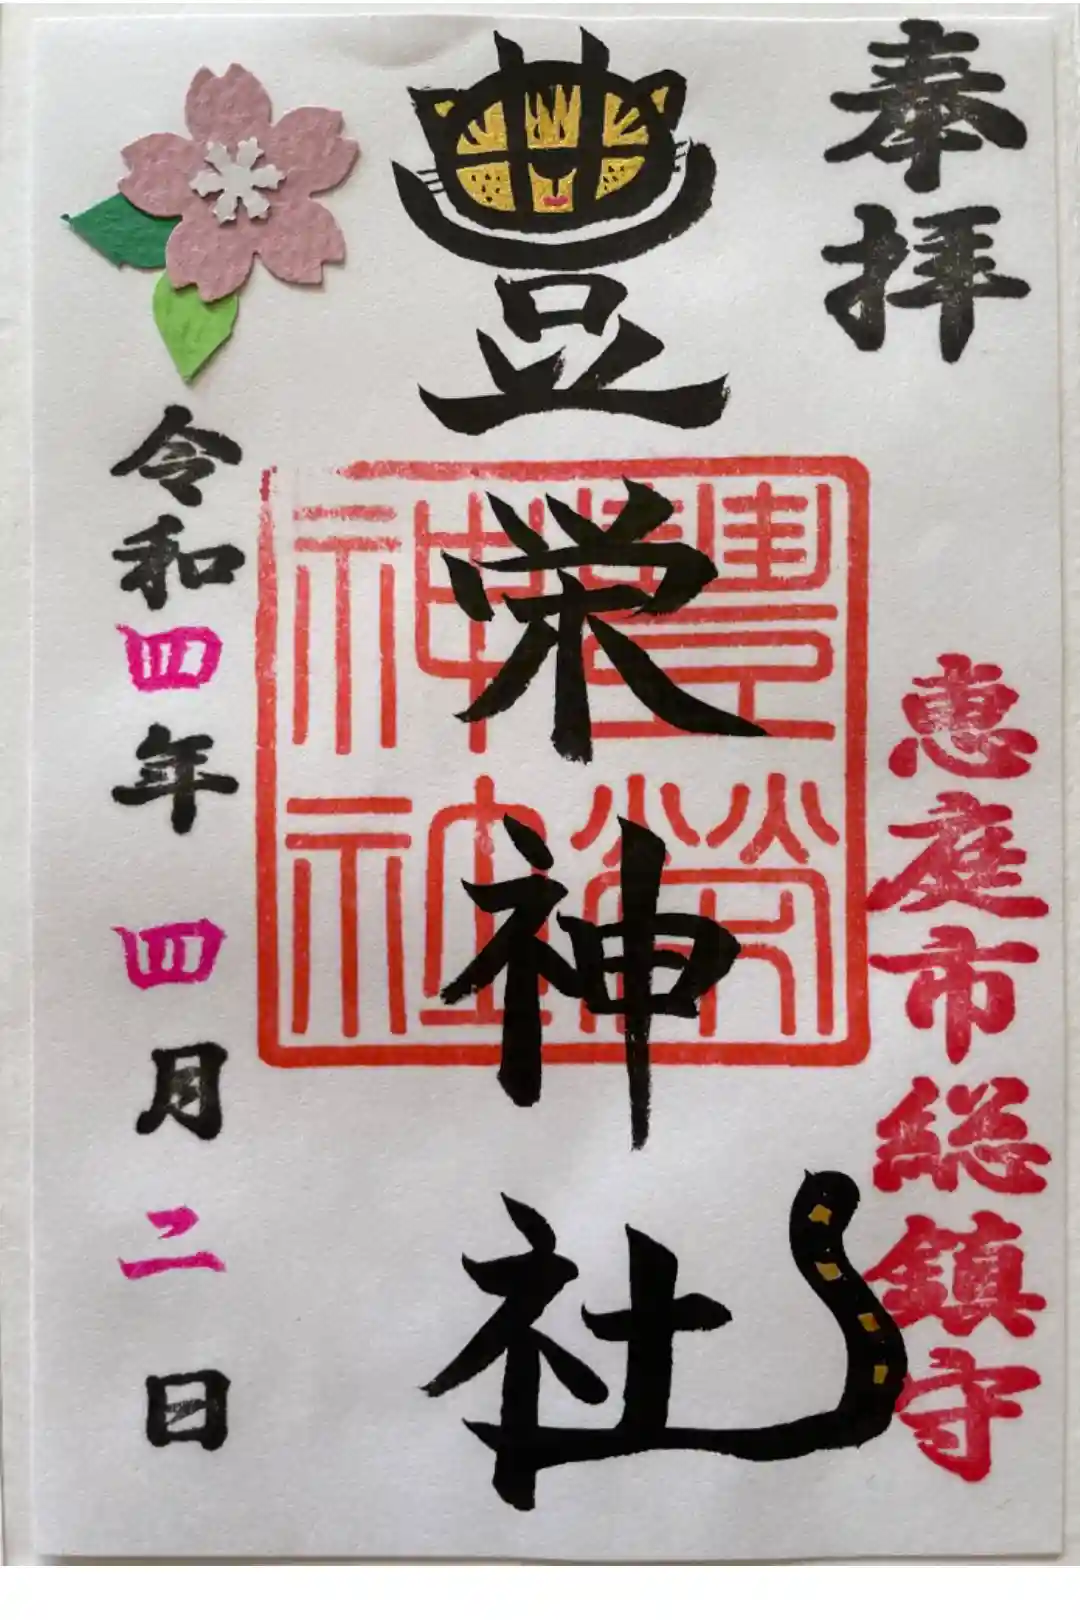 奉拝
恵庭市総鎮守
豊栄神社
豊榮
神社
令和四年四月二日